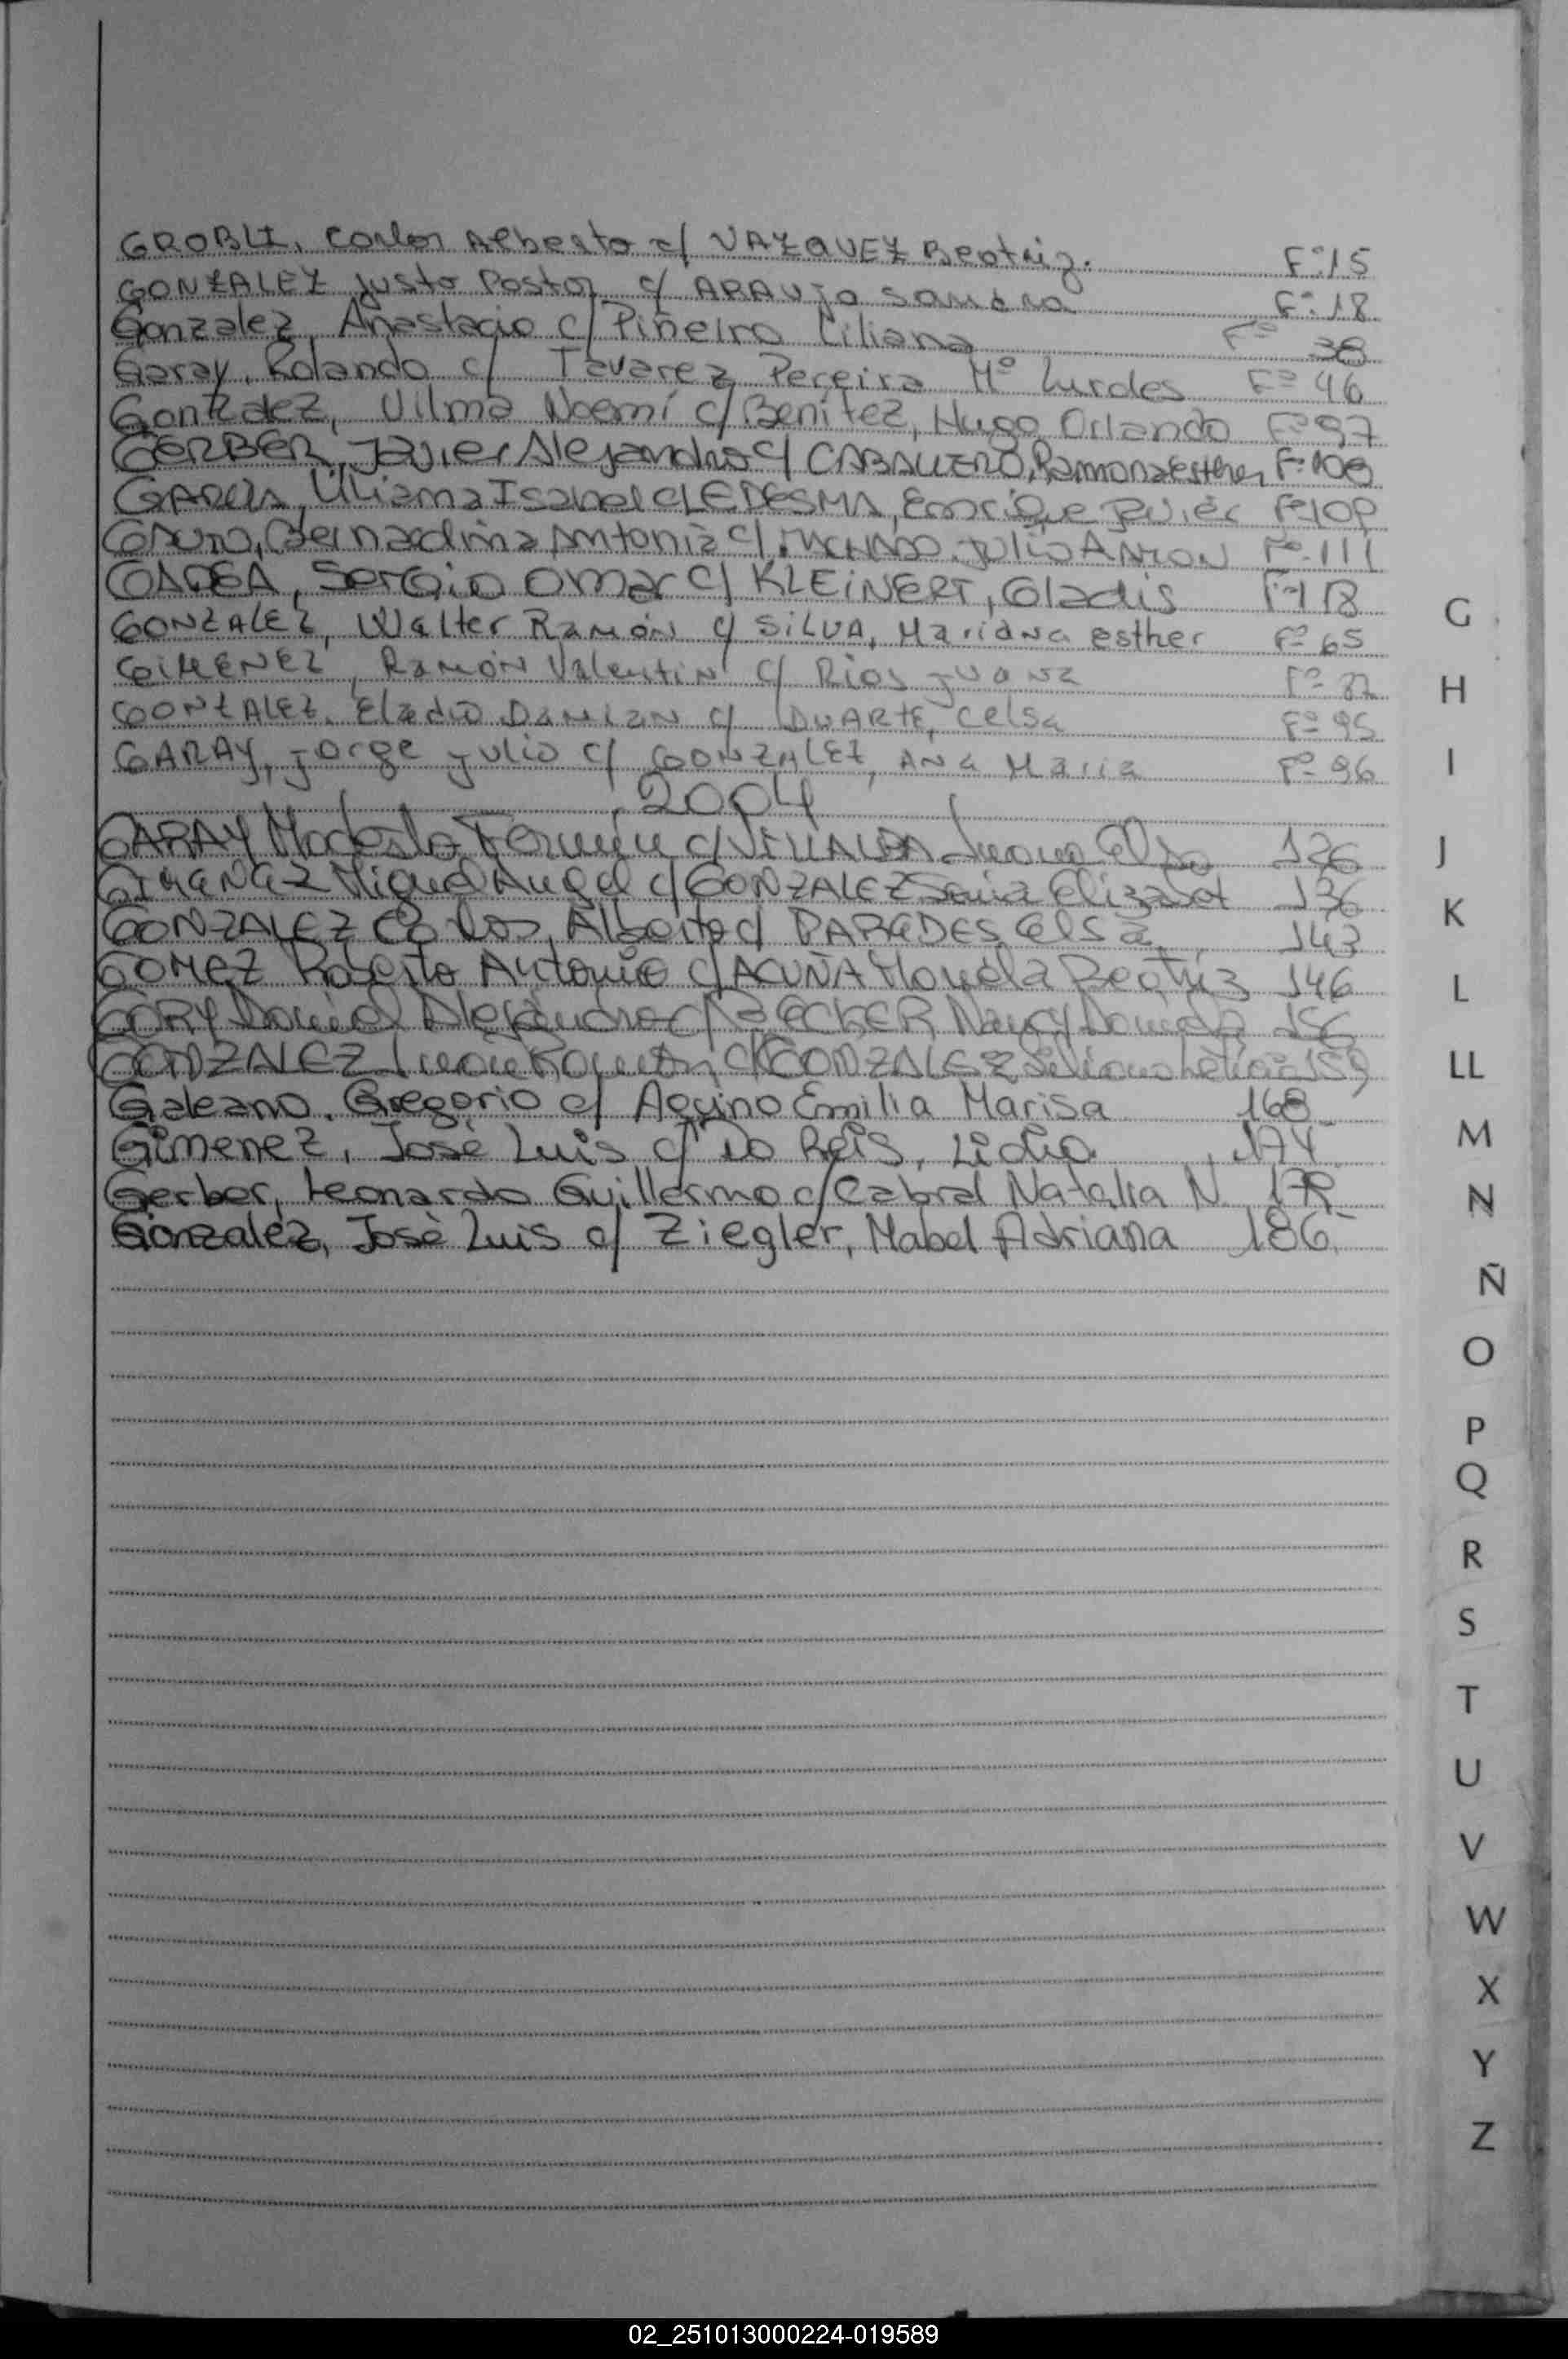 GROBLI, Carlos Alberto c/ VAZQUEZ Beatriz. F°15
GONZALEZ Justo Pastor c/ ARAUJO Sandra F° 18
Gonzalez, Anastacio c/ Piñeiro Liliana F° 38
Garay, Rolando c/ Tavarez Pereira Mº Lurdes Fº 46
Gonzalez, Vilma Noemí c/ Benitez, Hugo Orlando Fº 97
GERBER, Javier Alejandro c/ CABALLERO, Ramona Esther Fº 108
GARCIA, Liliana Isabel c/ LEDESMA, Enrique Fº 109
Bernardina Antonia c/ MACHADO, Julio Fº 111
Sergio Omar c/ KLEINERT, Gladis Fº
GONZALEZ, Walter Ramón c/ SILVA, Mariana Esther Fº 65
GIMENEZ, Ramón Valentin c/ Rios Juana Fº 87
GONZALEZ, Eladio Damian c/ DUARTE, Celsa Fº 95
GARAY, Jorge Julio c/ GONZALEZ, Ana Maria Fº 96
2004
GARAY Modesto Fermin c/ VILLALBA Juana Elsa 126
GIMENEZ Miguel Angel c/ GONZALEZ Elizabet 136
GONZALEZ Carlos, Alberto c/ PAREDES Elsa 143
GOMEZ Roberto Antonio c/ ACUÑA Beatriz 146
GORY Daniel Alejandro c/ BECKER Nancy 156
GONZALEZ Juan Ramón c/ GONZALEZ 159
Galeano, Gregorio c/ Aquino Emilia Marisa 168
Gimenez, José Luis c/ Do Reis, Lidia 174
Gerber, Leonardo Guillermo c/ Cabral Natalia N.
Gonzalez, José Luis c/ Ziegler, Mabel Adriana 186
G
H
I
J
K
L
LL
M
N
Ñ
O
P
Q
R
S
T
U
V
W
X
Y
Z
02_251013000224-019589